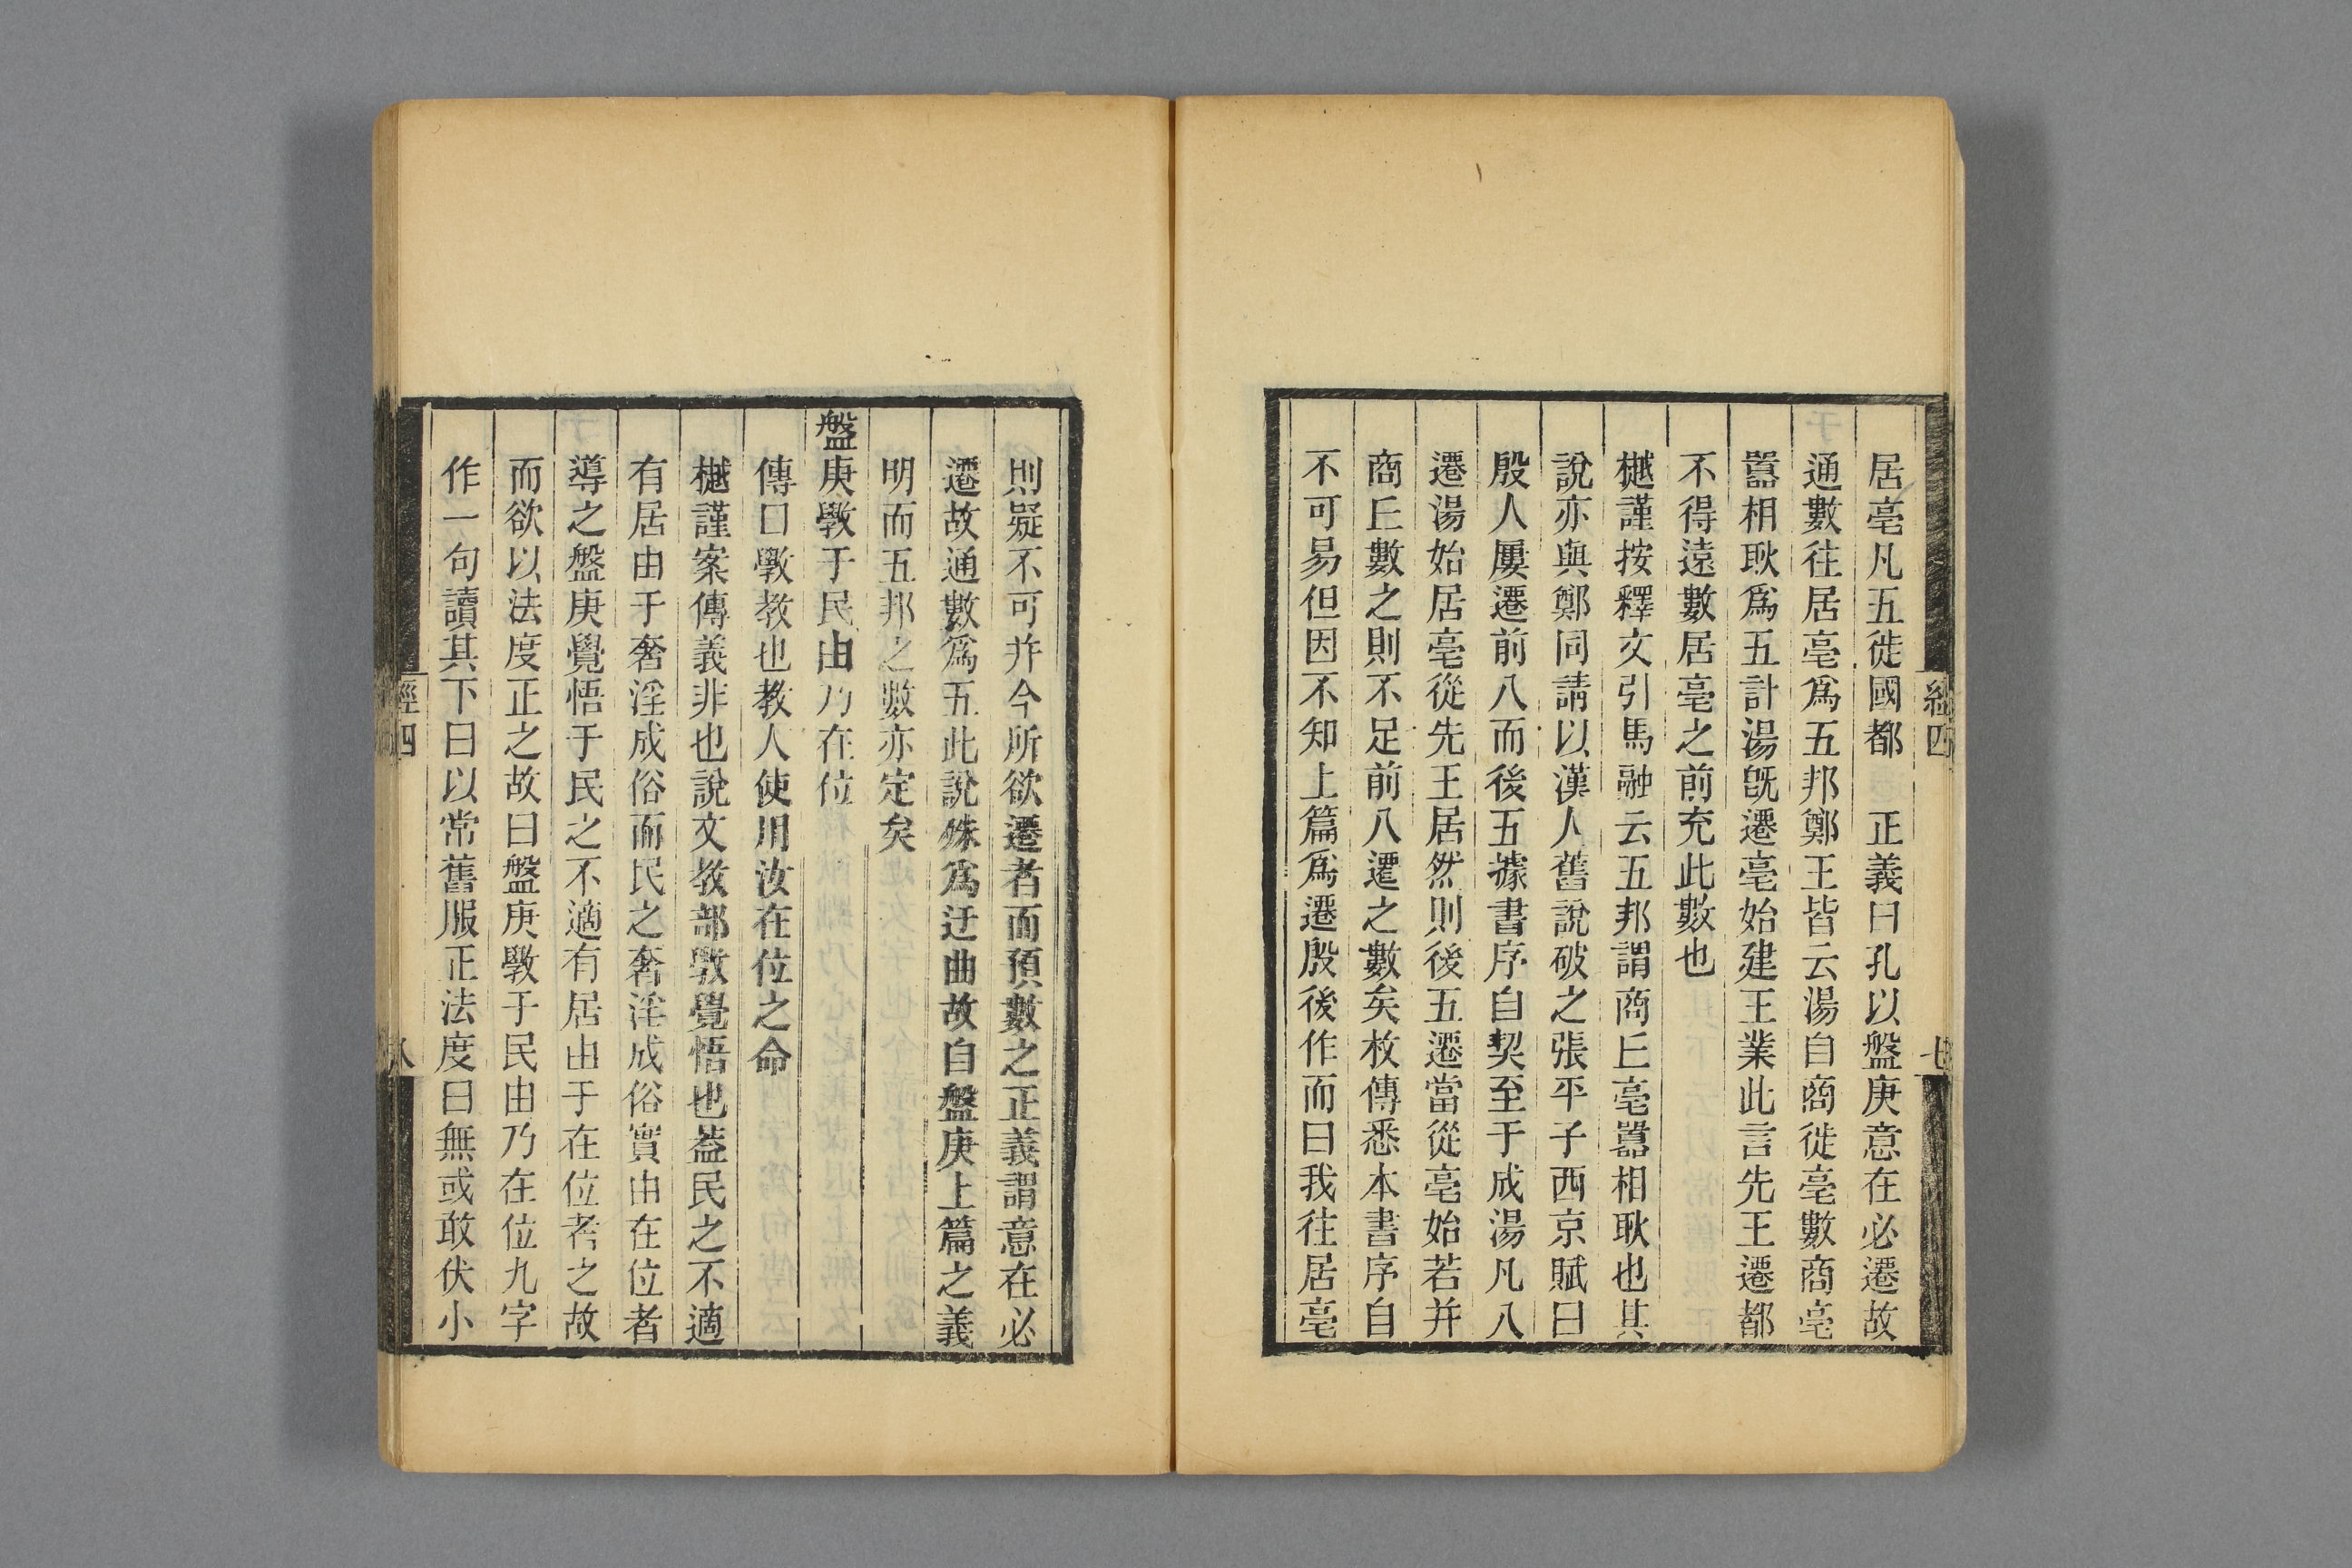 經四
七
居亳凡五徙國都　正義曰孔以盤庚意在必遷故
通數往居亳爲五邦鄭王皆云湯自商徙亳數商亳
囂相耿爲五計湯旣遷亳始建王業此言先王遷都
不得遠數居亳之前充此數也
樾謹按釋文引馬融云五邦謂商丘亳囂相耿也其
說亦與鄭同請以漢人舊說破之張平子西京賦曰
殷人屢遷前八而後五據書序自契至于成湯凡八
遷湯始居亳從先王居然則後五遷當從亳始若并
商丘數之則不足前八遷之數矣枚傳悉本書序自
不可易但因不知上篇爲遷殷後作而曰我往居亳
則疑不可并今所欲遷者而預數之正義謂意在必
遷故通數爲五此說殊爲迂曲故自盤庚上篇之義
明而五邦之數亦定矣
盤庚斆于民由乃在位
傳曰斆教也教人使用汝在位之命
樾謹案傳義非也說文教部斆覺悟也葢民之不適
有居由于奢淫成俗而民之奢淫成俗實由在位者
導之盤庚覺悟于民之不適有居由于在位者之故
而欲以法度正之故曰盤庚斆于民由乃在位九字
作一句讀其下曰以常舊服正法度曰無或敢伏小
經四
八